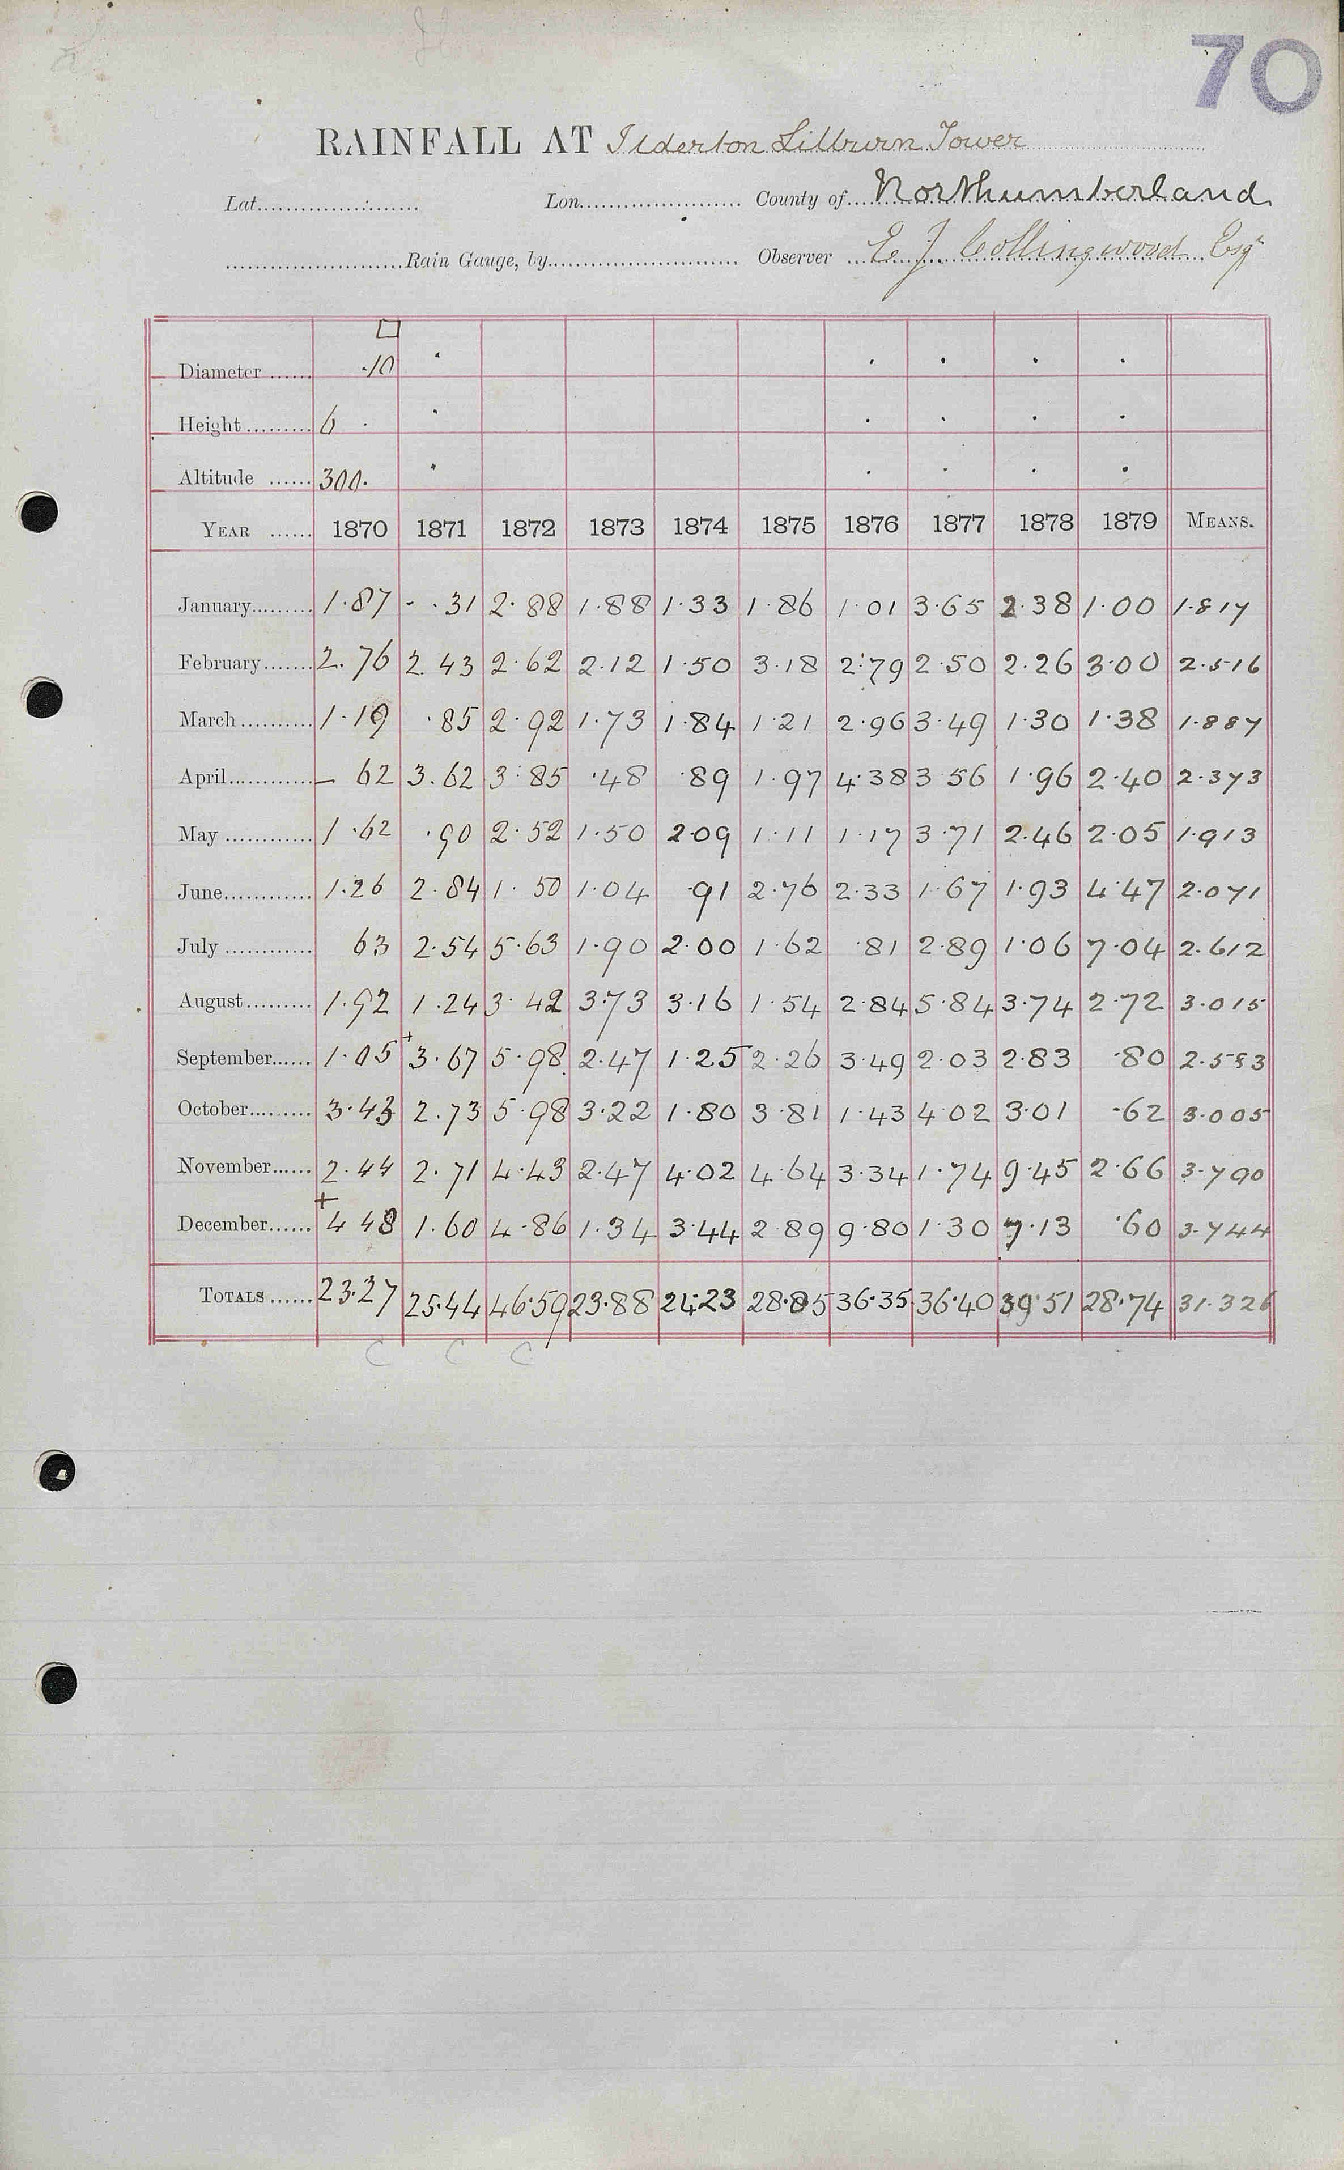 70
RAINFALL AT Ilderton Lilburn Tower
Lat. Lon. County of Northumberland
Rain Gauge, by Observer E J. Collingwood Esqr
Diameter ...... ·10
Height ......... 6 ·
Altitude ...... 300.
YEAR ...... 1870 1871 1872 1873 1874 1875 1876 1877 1878 1879 MEANS.
January......... 1·87 - ·31 2·88 1·88 1·33 1·86 1·01 3·65 2·38 1·00 1·817
February....... 2.76 2.43 2·62 2·12 1·50 3·18 2·79 2·50 2·26 3·00 2·516
March.......... 1·19 ·85 2·92 1·73 1·84 1·21 2·96 3·49 1·30 1·38 1·887
April............ — 62 3.62 3·85 ·48 ·89 1·97 4·38 3 56 1·96 2·40 2·373
May ............ 1·62 ·90 2·52 1·50 2·09 1·11 1·17 3·71 2·46 2·05 1·913
June............ 1·26 2·84 1·50 1·04 ·91 2·76 2·33 1·67 1·93 4·47 2·071
July ............ 63 2·54 5·63 1·90 2·00 1·62 ·81 2·89 1·06 7·04 2·612
August......... 1·92 1·24 3·42 3·73 3·16 1·54 2·84 5·84 3·74 2·72 3·015
September...... 1·05 +3·67 5·98 2·47 1·25 2·26 3·49 2·03 2·83 ·80 2·583
October......... 3·43 2·73 5·98 3·22 1·80 3·81 1·43 4·02 3·01 ·62 3·005
November...... 2·44 2·71 4·43 2·47 4·02 4·64 3·34 1·74 9·45 2·66 3·790
December...... +4 48 1·60 4·86 1·34 3·44 2·89 9·80 1·30 7·13 ·60 3·744
TOTALS ...... 23·27 25·44 46·59 23·88 24·23 28·85 36·35 36·40 39·51 28·74 31·326
C C C